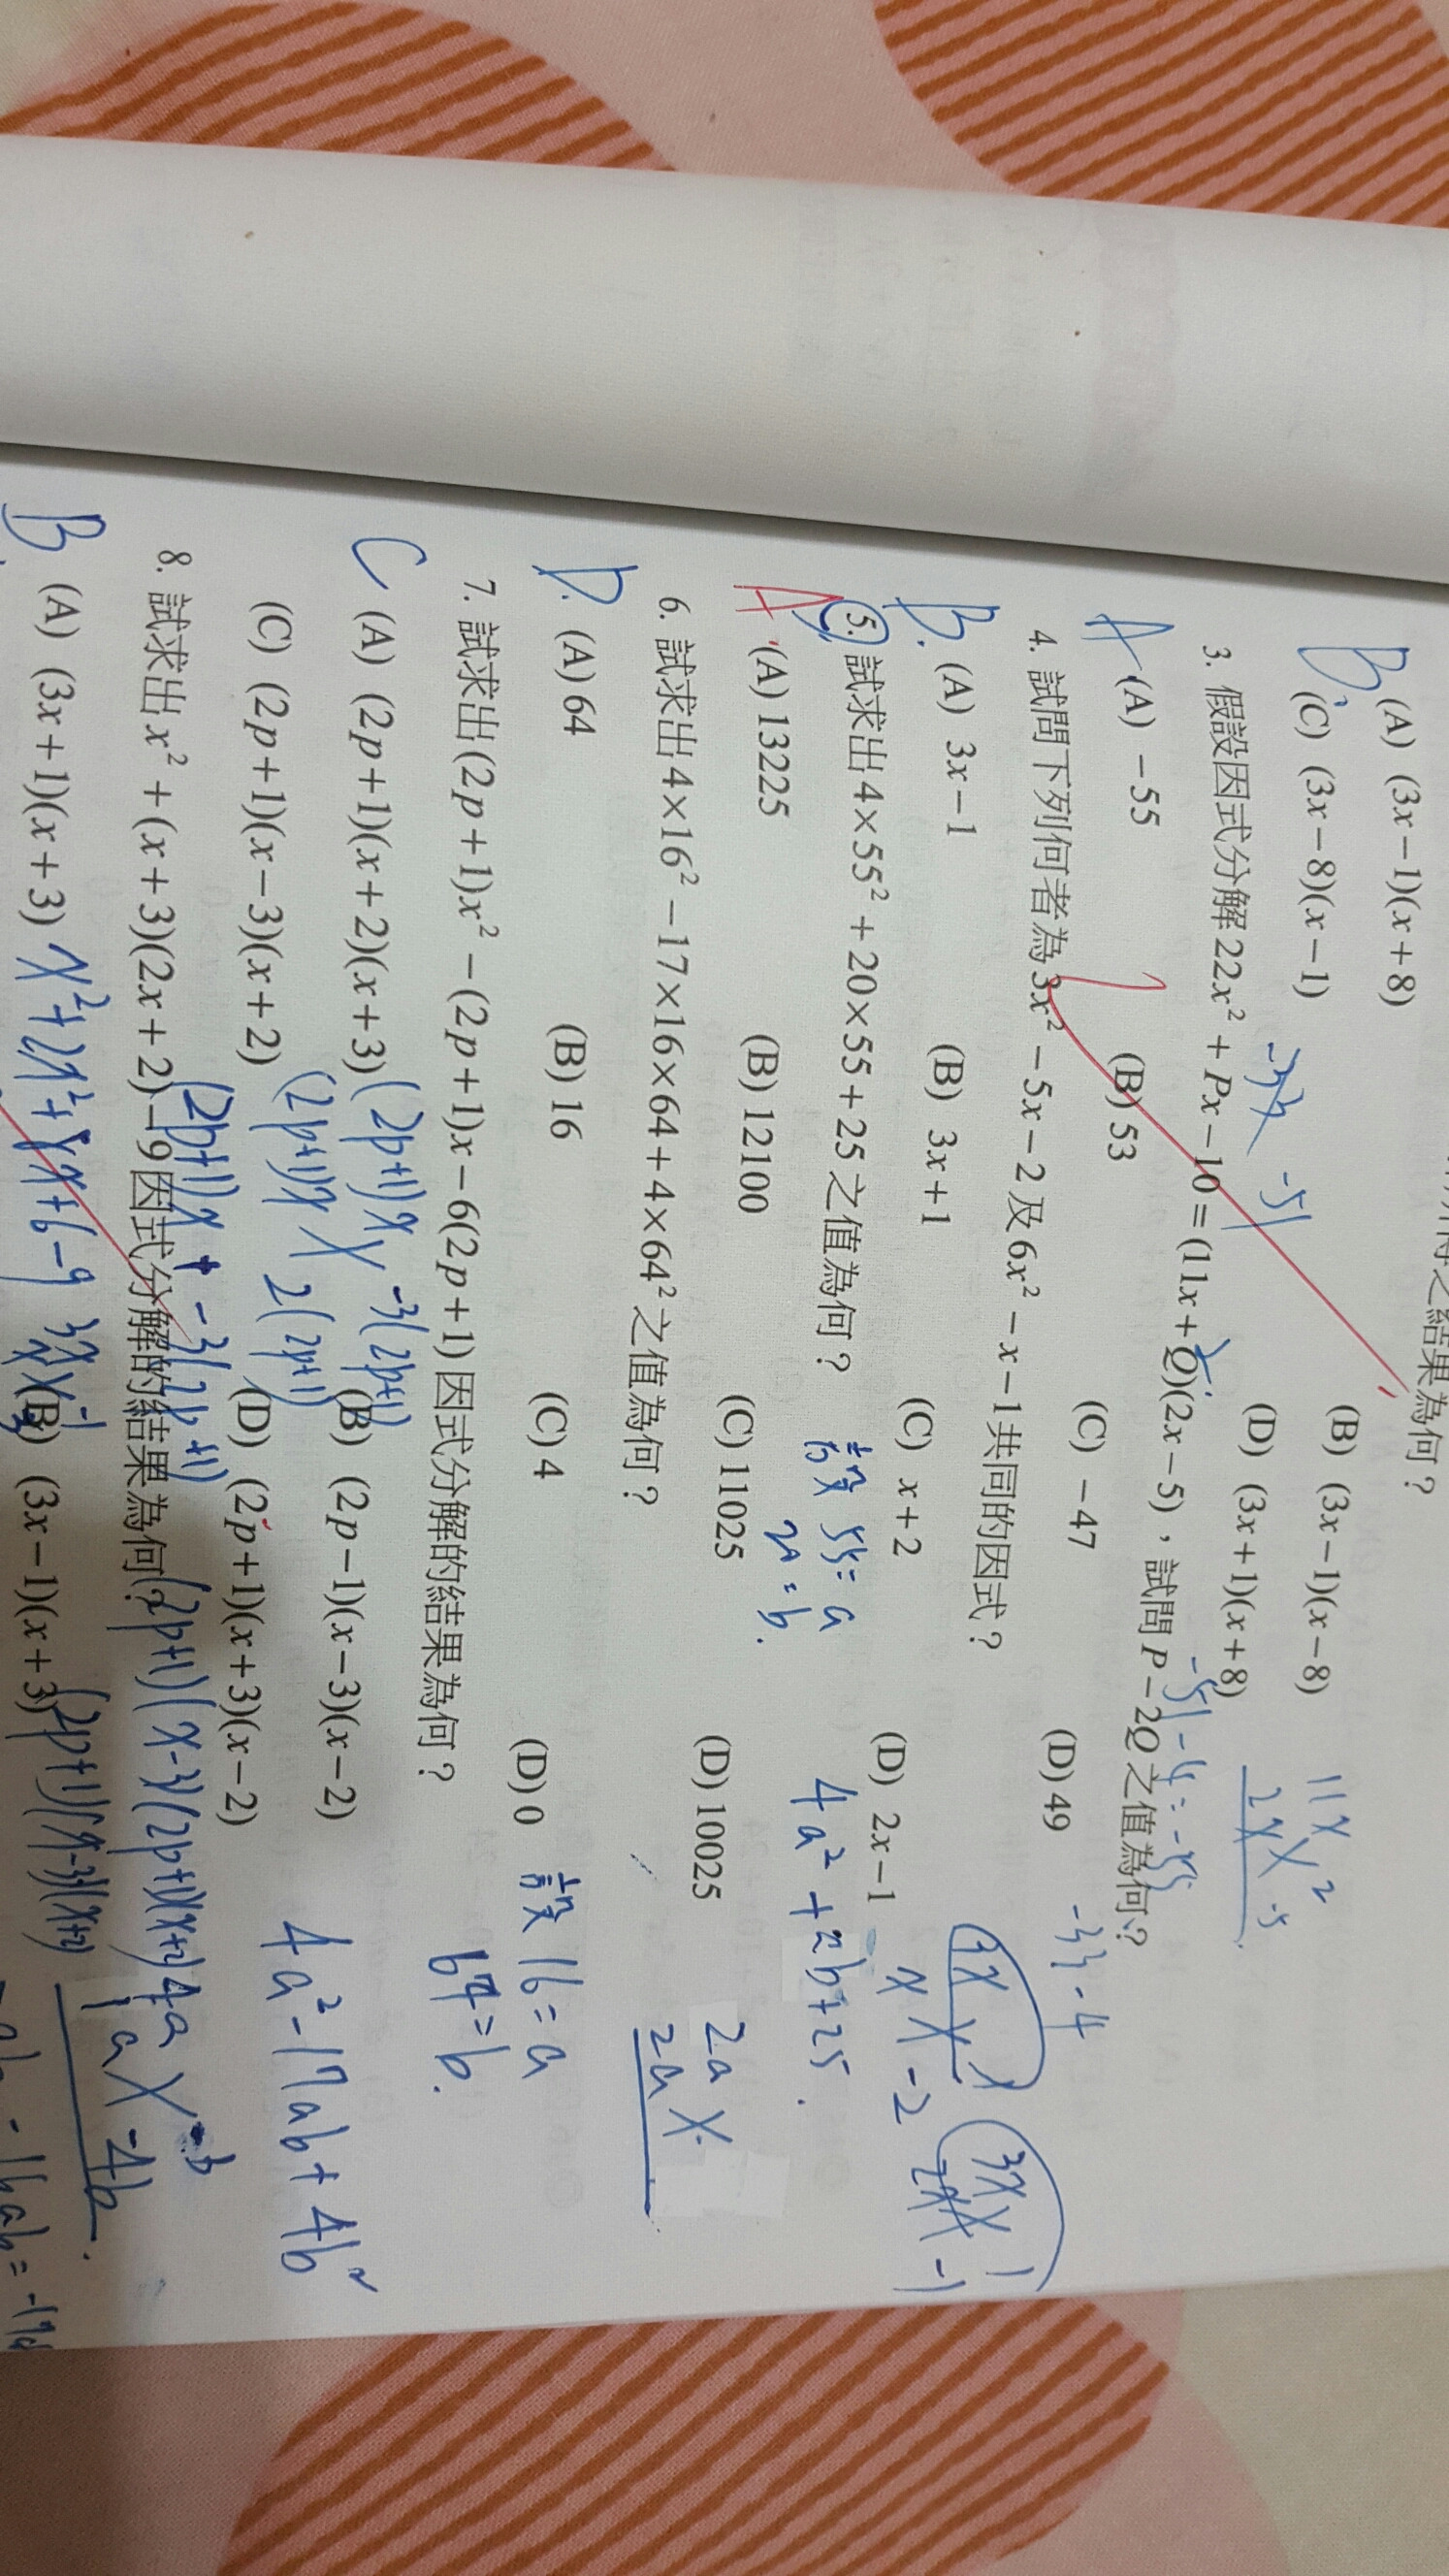 得之結果為何?
B. (A) (3x−1)(x+8) (B) (3x−1)(x−8)
(C) (3x−8)(x−1) (D) (3x+1)(x+8)
11x 2
2x −5
−51
3. 假設因式分解22x²+Px−10=(11x+Q)(2x−5),試問P−2Q之值為何?
−51−4=−55
A (A) −55 (B) 53 (C) −47 (D) 49
4. 試問下列何者為3x²−5x−2及6x²−x−1共同的因式?
B. (A) 3x−1 (B) 3x+1 (C) x+2 (D) 2x−1
3x 1
x −2
3x 1
2x −1
5. 試求出4×55²+20×55+25之值為何?
設 55=a
4a²+2b+25
A (A) 13225 (B) 12100 (C) 11025 (D) 10025
2a
2a
6. 試求出4×16²−17×16×64+4×64²之值為何?
D. (A) 64 (B) 16 (C) 4 (D) 0
設 16=a
64=b.
7. 試求出(2p+1)x²−(2p+1)x−6(2p+1)因式分解的結果為何?
C (A) (2p+1)(x+2)(x+3) (B) (2p−1)(x−3)(x−2)
(2p+1)x −3(2p+1)
(2p+1)x 2(2p+1)
4a²−17ab+4b²
(C) (2p+1)(x−3)(x+2) (D) (2p+1)(x+3)(x−2)
4a −b
1a −4b
8. 試求出x²+(x+3)(2x+2)−9因式分解的結果為何?
(2p+1)(x−3)(x+2)
B. (A) (3x+1)(x+3) (B) (3x−1)(x+3)
−16ab=−17a